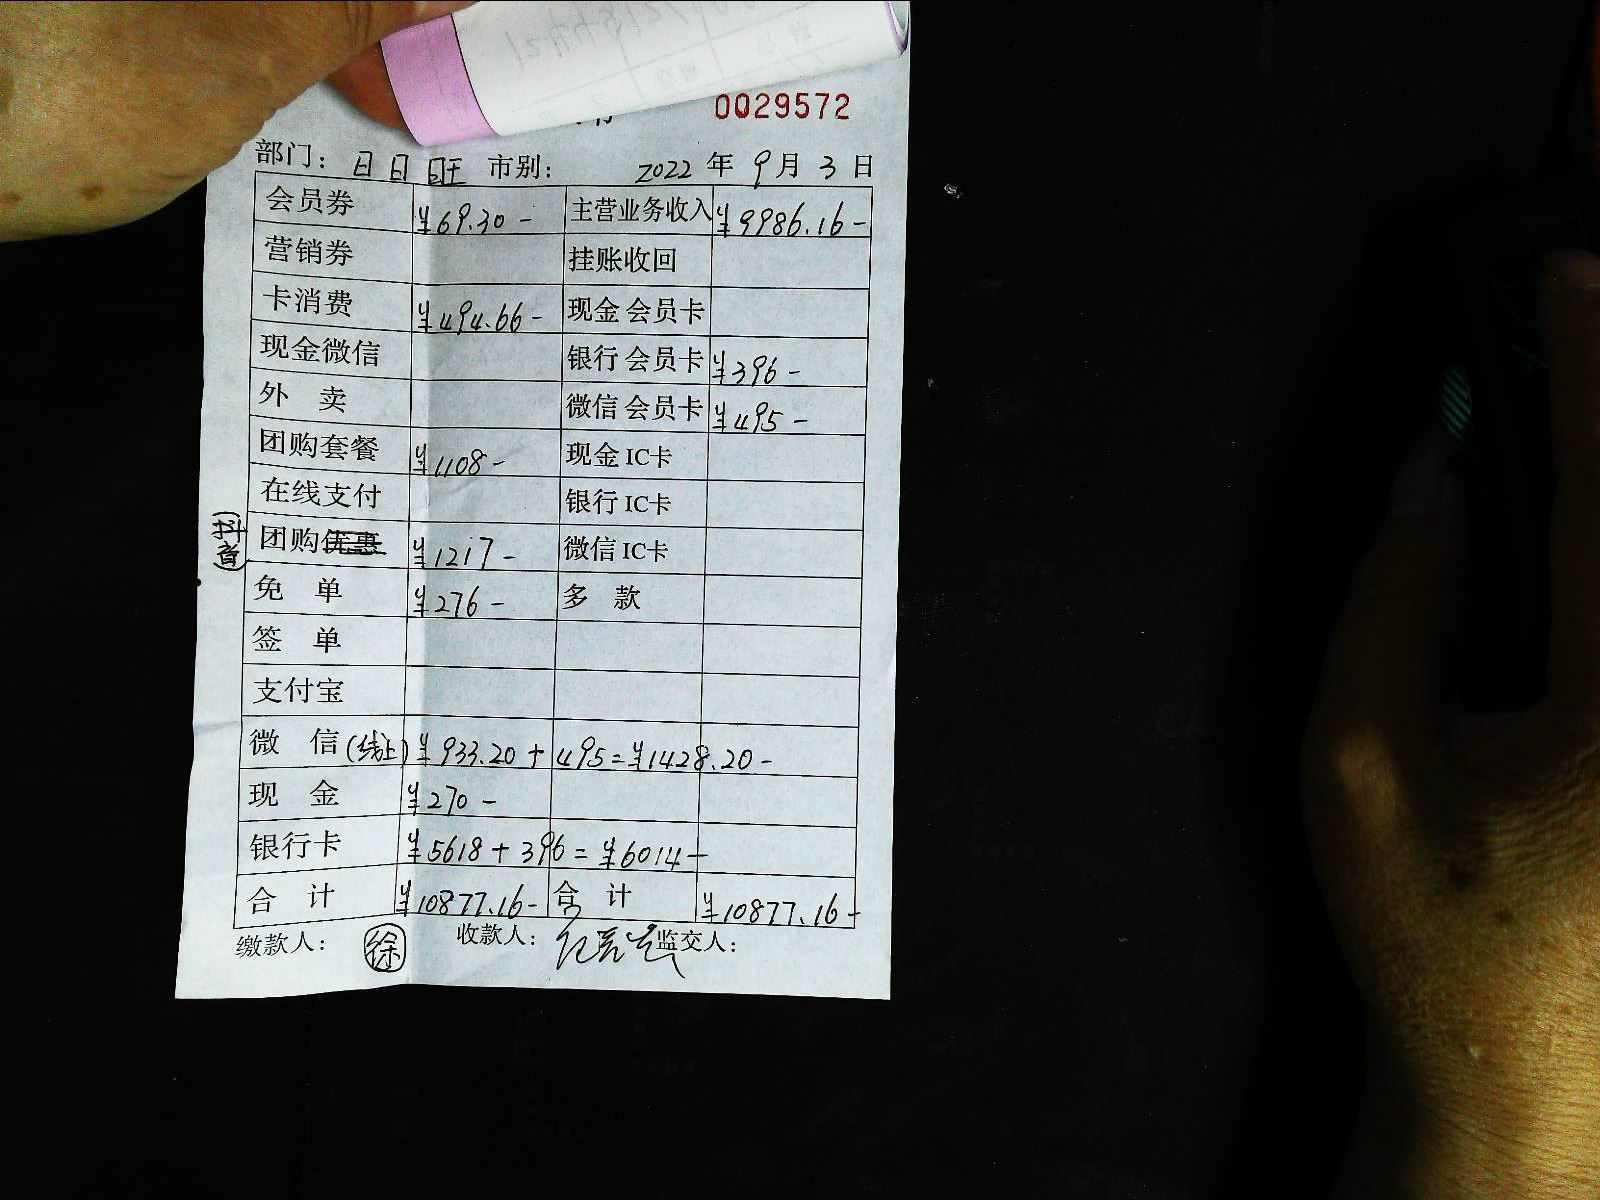 0029572
部门: 日日旺 市别: 2022年9月3日
会员券 ¥69.30- 主营业务收入 ¥9986.16-
营销券 挂账收回
卡消费 ¥494.66- 现金会员卡
现金微信 银行会员卡 ¥396-
外 卖 微信会员卡 ¥495-
团购套餐 ¥1108- 现金IC卡
在线支付 银行IC卡
团购优惠 ¥1217- 微信IC卡
免 单 ¥276- 多 款
签 单
支付宝
微 信(线上) ¥933.20+495=¥1428.20-
现 金 ¥270-
银行卡 ¥5618+396=¥6014-
合 计 ¥10877.16- 合 计 ¥10877.16-
缴款人: 徐 收款人: 监交人: